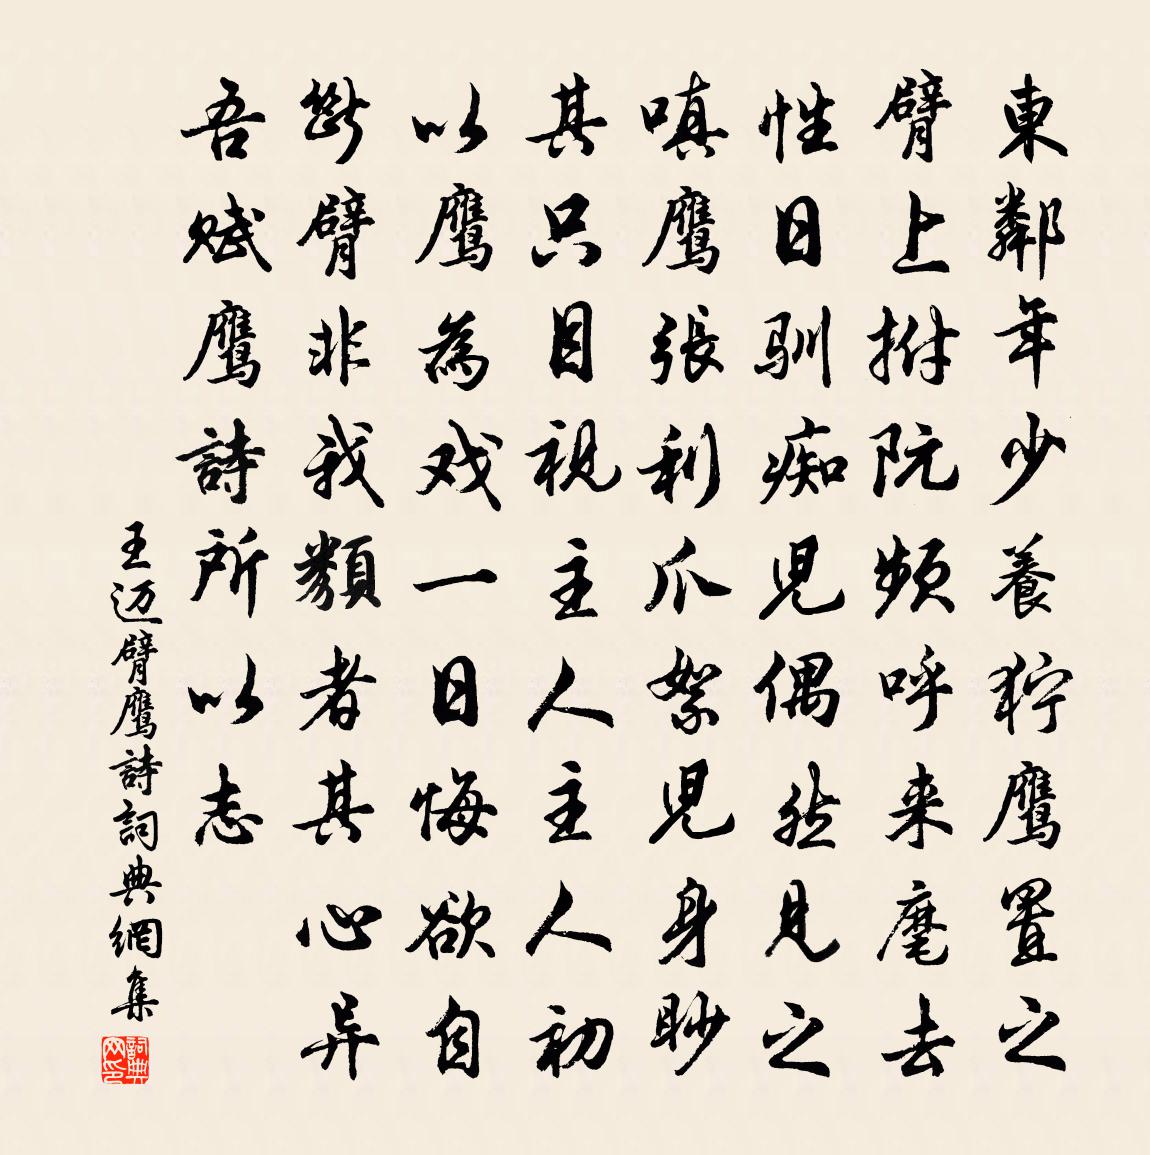 東鄰年少養狞鹰置之
臂上拊阮頻呼来麾去
性日驯痴児偶然見之
嗔鹰張利爪絮児身眇
其只目視主人主人初
以鹰為戏一日悔欲自
断臂非我類者其心异
吾赋鹰詩所以志
王迈臂鹰詩詞典網集
詞典网